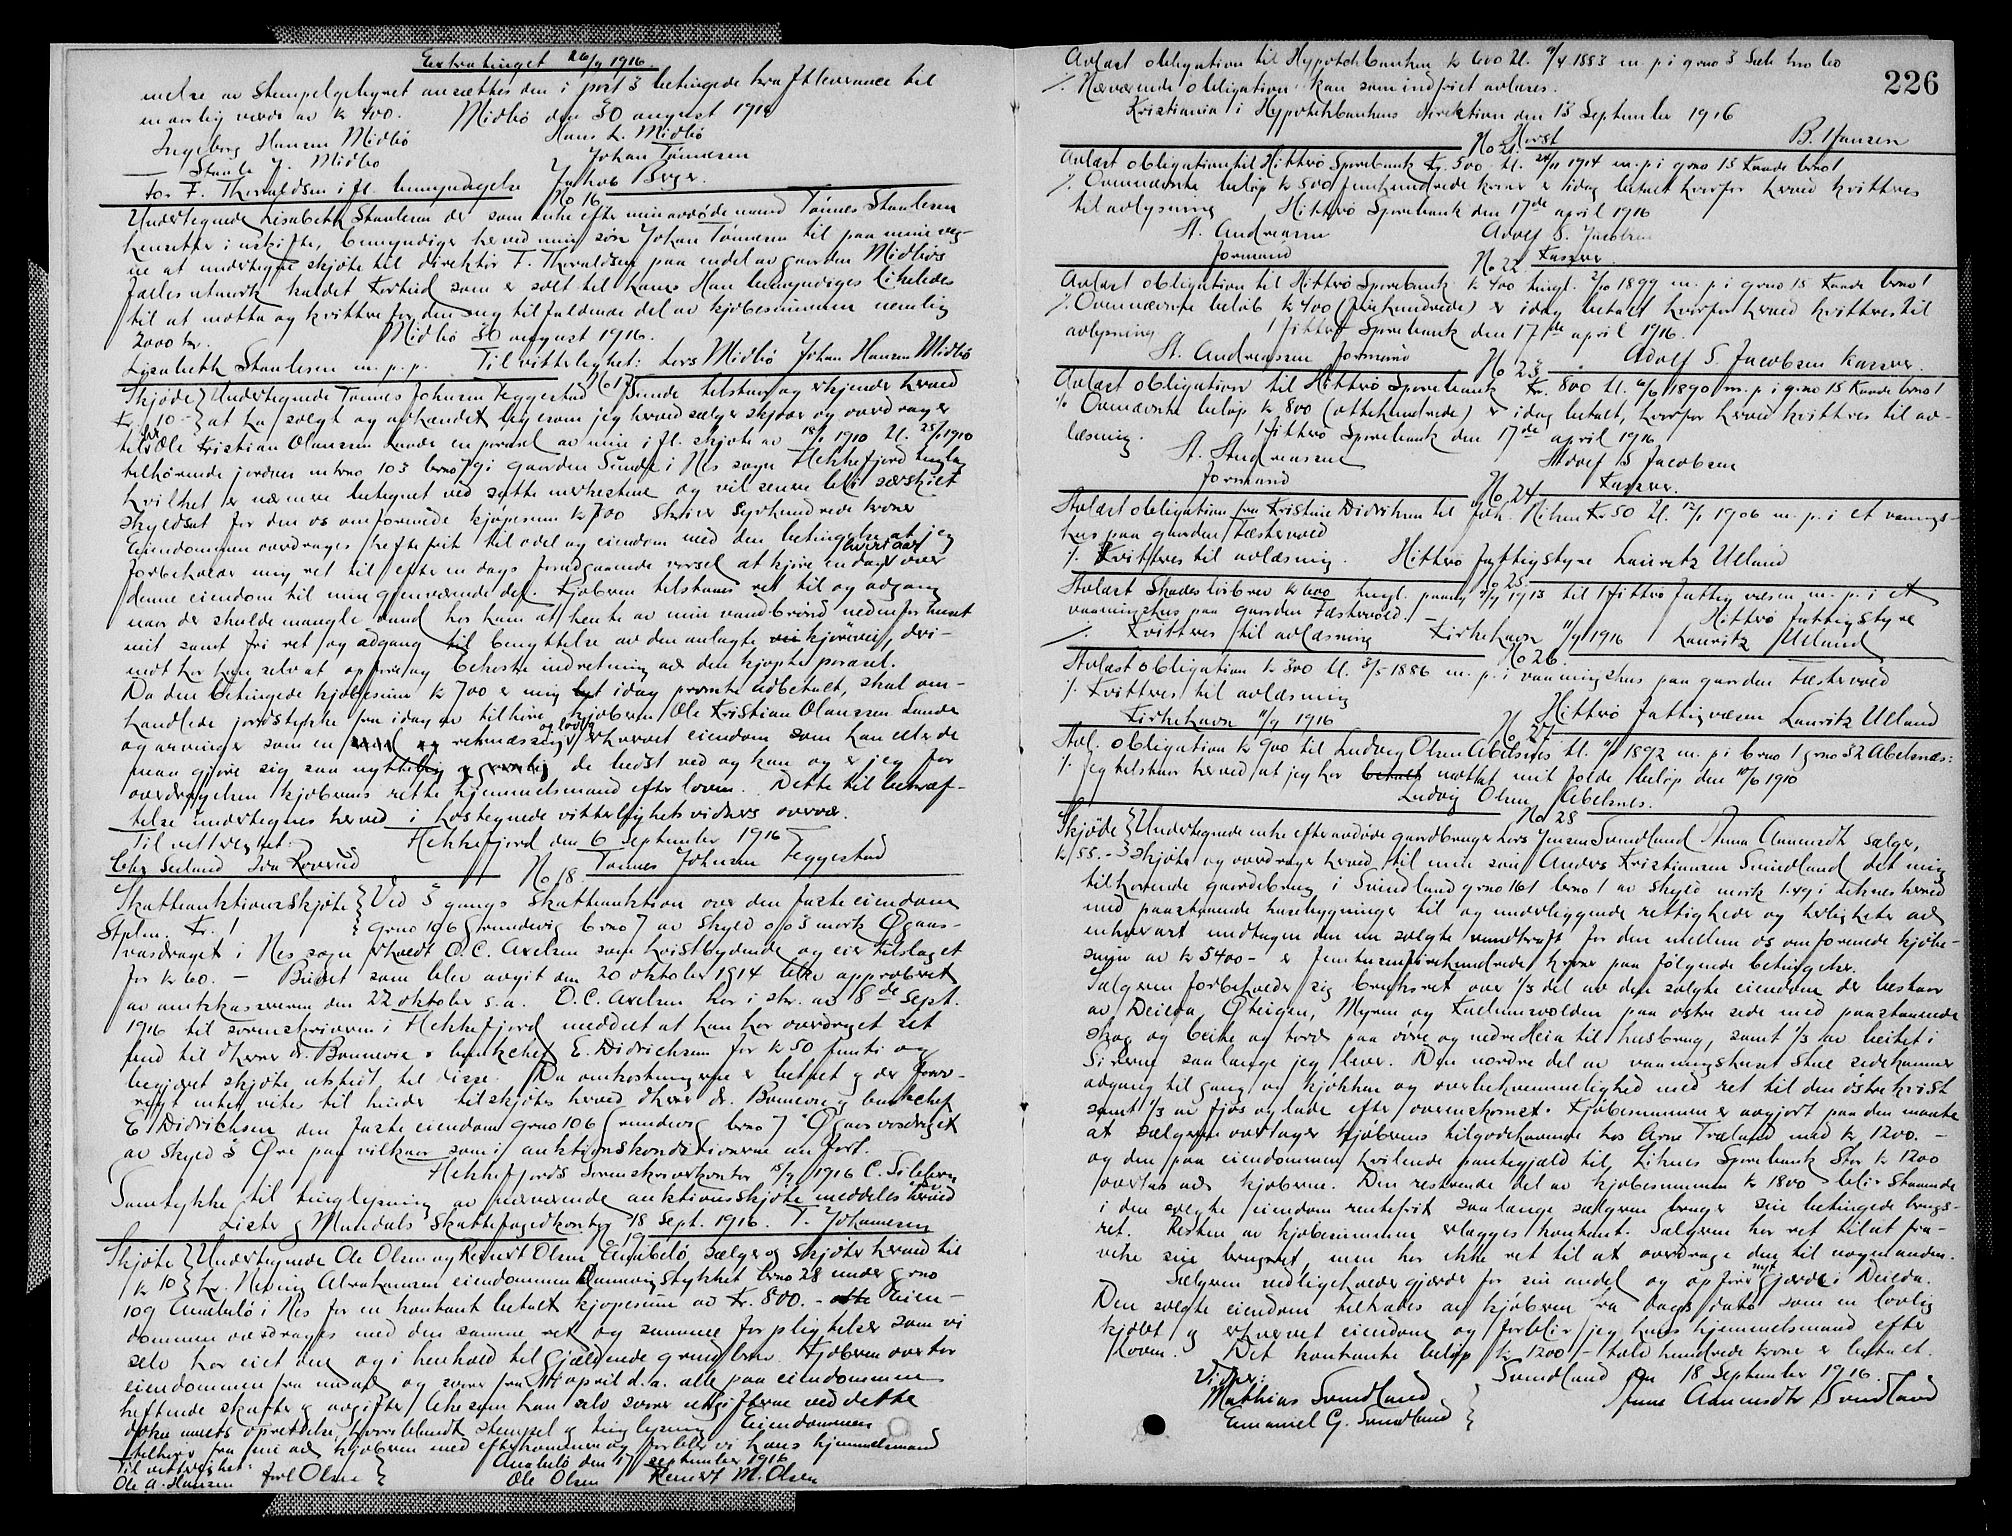 Extratinget 26/9 1916.
melse av Stempelgebyret ansættes den i post 3 betingede Leverance til
en aarlig værdi av kr 400. Midbö den 30 august 1916
Ingeborg Hansen Midbö Hans L. Midbö
Staale J. Midbö Johan Tönnesen
for F. Thoraldsen i fl. bemyndigelse Jakob Berge.
No 16
Undertegnede Lisabeth Staalesen der som enke efter min avdöde mand Tönnes Staalesen
hensitter i uskifte, bemyndiger herved min sön Johan Tönnesen til paa mine veg-
ne at undertegne skjöte til direktör F. Thoraldsen paa endel av gaarden Midbös
fælles utmark kaldet som er solt til ham. Han bemyndiges likeledes
til at motta og kvittere for den mig tilfaldende del av kjöbesummen nemlig
2000 kr. Midbö 30 august 1916.
Lisabeth Staalesen m. p. p. Til vitterlighet: Lars Midbö Johan Hansen Midbö
No 17
Skjöde Undertegnede Tönnes Johnsen Teggestad Sunde tilstaar og erkjender herved
kr. 10.- at ha solgt og avhændet likesom jeg herved sælger skjöter og overdrager
til Ole Kristian Olaussen Lunde en parsel av min i fl. skjöte av 18/1 1910 tl. 25/1 1910
tilhörende jordeiendom gno 103 bno 7 i gaarden Sunde i Nes sogn Flekkefjord tinglag
hvilket er nærmere betegnet ved satte merkestene og vil senere bli særskilt
skyldsat for den os omforenede kjöpesum kr 700 skriver Syvhundrede kroner
Eiendommen overdrages heftefrit til odel og eiendom med den betingelse at jeg
forbeholder mig ret til efter en dags forutgaaende varsel at kjöre en dag hvert aar over
denne eiendom til min gjenværende del. Kjöberen tilstaaes ret til og adgang
naar der skulde mangle vand hos ham at hente av min vandbrönd nedenfor huset
mit samt fri ret og adgang til benyttelse av den anlagte kjörevei, der-
imot har han selv at opföre og bekoste indretning av den kjöpte parsel.
Da den betingede kjöbesum kr 700 er mig idag prompte utbetalt, skal om-
handlede jordstykke fra idag av tilhöre kjöberen Ole Kristian Olaussen Lunde
og arvinger som en retmæssig og lovlig erhvervet eiendom som han eller de
maa gjöre sig saa nyttig de bedst ved og kan og er jeg for
overdragelsen kjöberens rette hjemmelsmand efter loven. Dette til bekræf-
telse undertegnes herved i hostegnede vitterlighetsvidners overvær.
Til vitterlighet: Flekkefjord den 6 September 1916
Chr Seland Iva Roverud Tönnes Johnsen Teggestad
No 18
Skatteauktionsskjöte Ved 3 gangs Skatteauktion over den faste eiendom
Stplm. Kr. 1 gno 106 Grundevig bno 7 av skyld 0,03 mark Ögaas-
vasdraget i Nes sogn erhvedt O.C. Axelsen som höistbydende og eier tilslaget
for kr 60. – Budet som blev avgit den 20 oktober 1914 blev approberet
av amtskassereren den 22 oktober s.a. O.C. Axelsen har i skr. av 8de Sept.
1916 til sorenskriveren i Flekkefjord meddelt at han har overdraget sit
bud til d'herrer dr. Bonnevie & bankchef E. Didrichsen for kr 50 femti og
begjæret skjöte utstedt til disse. Da omkostningerne er betalt og der forøv-
rigt intet vites til hinder tilskjötes herved d'herrer dr. Bonnevie & bankchef
E Didrichsen den faste eiendom gno 106 Grundevig bno 7 Ögaasvasdraget
av skyld 3 Öre paa vilkaar som i auktionskonditionerne anfört.
Flekkefjords Sorenskriverkontor 15/9 1916 C.
Samtykke til tinglysning av nærværende auktionsskjöte meddeles herved
Lister & Mandals Skattefogedkontor 18 Sept. 1916. T. Johannesen
No 19
Skjöte Undertegnede Ole Olsen og Renert Olsen Anabelö sælger og skjöter herved til
kr 10 hr. Abrahamsen eiendommen stykket bno 28 under gno
109 Anabelö i Nes for en kontant betalt kjöpesum av kr. 800. – Eien-
dommen overdrages med den samme ret og samme forpligtelser som vi
selv har eiet den og i henhold til gjældende grundlove. Kjöberen overtar
eiendommen fra nu av og svarer fra 14 april d.a. alle paa eiendommen
heftende skatter & avgifter likesom han selv svarer utgifterne ved dette
dokuments oprettelse, hvoriblandt stempel & tinglysning. Eiendommen
tilhörer fra nu av kjöberen med efterkommere og forblir vi hans hjemmelsmænd
Anabelö den 17 september 1916
Til vitterlighet: Ole A. Hansen Joel Olsen Ole Olsen Renert M. Olsen
226
Avlæst obligation til Hypotekbanken kr 600 tl. 9/4 1883 m. p. i gno 3 bno 60
%. Nærværende obligation kan som indfriet avlæses.
Kristiania i Hypotekbankens direktion den 13 September 1916
Horst B. Hansen
No 21
Avlæst obligation til Hitterö Sparebank Kr. 500 tl. 24/11 1914 m. p. i gno 15 Rande bno 1
%. Ovennævnte beløp kr 500 femhundrede kroner er idag betalt hvorfor herved kvitteres
til avlysning Hitterö Sparebank den 17de april 1916
A. Andreassen Adolf S. Jacobsen
formand Kasser.
No 22
Avlæst obligation til Hitterö Sparebank kr 400 tingl. 2/10 1899 m. p. i gno 15 Rande bno 1
%. Ovennævnte beløb kr 400 (firehundrede) er idag betalt hvorfor herved kvitteres til
avlysning Hitterö Sparebank den 17de april 1916.
A. Andreassen formand Adolf S. Jacobsen kasser.
No 23
Avlæst obligation til Hitterö Sparebank Kr. 800 tl. 6/6 1890 m. p. i gno 15 Rande bno 1
%. Ovennævnte beløp kr 800 (ottehundrede) er idag betalt, hvorfor herved kvitteres til av-
læsning. Hitterö Sparebank den 17de april 1916
A. Andreassen Adolf S Jacobsen
formand Kasser.
No 24
Avlæst obligation fra Kristine Didriksen til Joh. Nilsen kr 50 tl. 12/1 1906 m. p. i et vaanings-
hus paa gaarden Fæstervold
%. Kvitteres til avlæsning. Hitterö Fattigstyre Lauritz Ueland
No 25
Avlæst Skadeslösbrev kr 600 tingl. 2/9 1913 til Hitterö Fattigvæsen m. p. i et
vaaningshus paa gaarden Fæstervold. Hitterö Fattigstyre
%. Kvitteres til avlæsning Kirkehavn 11/9 1916 Lauritz Ueland
No 26.
Avlæst obligation kr 300 tl. 3/5 1886 m. p. i vaaningshus paa gaarden Fæstervold
%. Kvitteres til avlæsning
Kirkehavn 11/9 1916 Hitterö Fattigvæsen Lauritz Ueland
No 27
Avl. obligation kr 900 til Ludvig Olsen Abelsnes tl. 1892 m. p. i bno 1 gno 32 Abelsnæs:
%. Jeg tilstaar herved at jeg har mottat mit fulde beløp den 10/6 1910
Ludvig Olsen Abelsnes.
No 28
Skjöde Undertegnede enke efter avdöde gaardbruger Lars Jensen Svindland Anna Aanensdtr sælger,
kr 55.- skjöter og overdrager herved til min sön Anders Kristiansen Svindland det mig
tilhörende gaardsbrug i Svindland gno 161 bno 1 av skyld mark 1.49 i Liknes herred
med paastaaende husebygninger til og underliggende rettigheter og herligheter av
enhver art undtagen den nu solgte vandkraft for den mellem os omforenede kjöbe-
sum av kr 5400- er femtusenfirehundrede kroner paa følgende betingelser.
Sælgeren forbeholder sig bruksret over 1/3 del av den solgte eiendom der bestaar
av Deilda, Øteigen, Myren og paa östre side med paastaaende
skog og beite og torv paa övre og nedre Heia til husbrug, samt 1/3 av beitet i
saalænge jeg lever. Den nordre del av vaaningshuset skal
adgang til gang og kjökken og overbekvemmelighed med ret til den östre kvist
samt 1/3 av fjös og lade efter overenskomst. Kjöbesummen er avgjort paa den maate
at sælgeren overtager kjöberens tilgodehavende hos Arne Træland med kr 1200.-
og den paa eiendommen hvilende pantegjæld til Liknes Sparebank stor kr 1200
overtas av kjöberen. Den resterende del av kjöbesummen kr 1800 blir staaende
i den solgte eiendom rentefrit saalænge sælgeren bruger sin betingede brugs-
ret. Resten av kjöbesummen erlægges kontant. Sælgeren har ret til at fra-
vike sin brugsret, men har ikke ret til at overdrage den til nogen anden.
Sælgeren vedligeholder gjærder for sin andel og opfører nyt Gjærde i Deilda.
Den solgte eiendom tiltrædes av kjöberen fra dags dato som en lovlig
kjöbt & erhvervet eiendom og forblir jeg hans hjemmelsmand efter
Loven. Det kontante beløp kr 1200/- tolv hundrede krone er betalt.
Vidner: Svindland den 18 September 1916.
Mathias Svindland Anna Aanensdtr Svindland
Emanuel G. Svindland